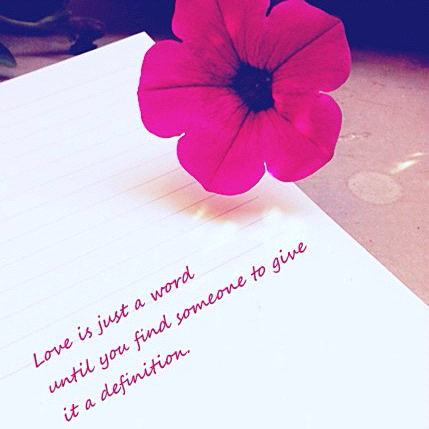 Love is just a word
until you find someone to give
it a definition.